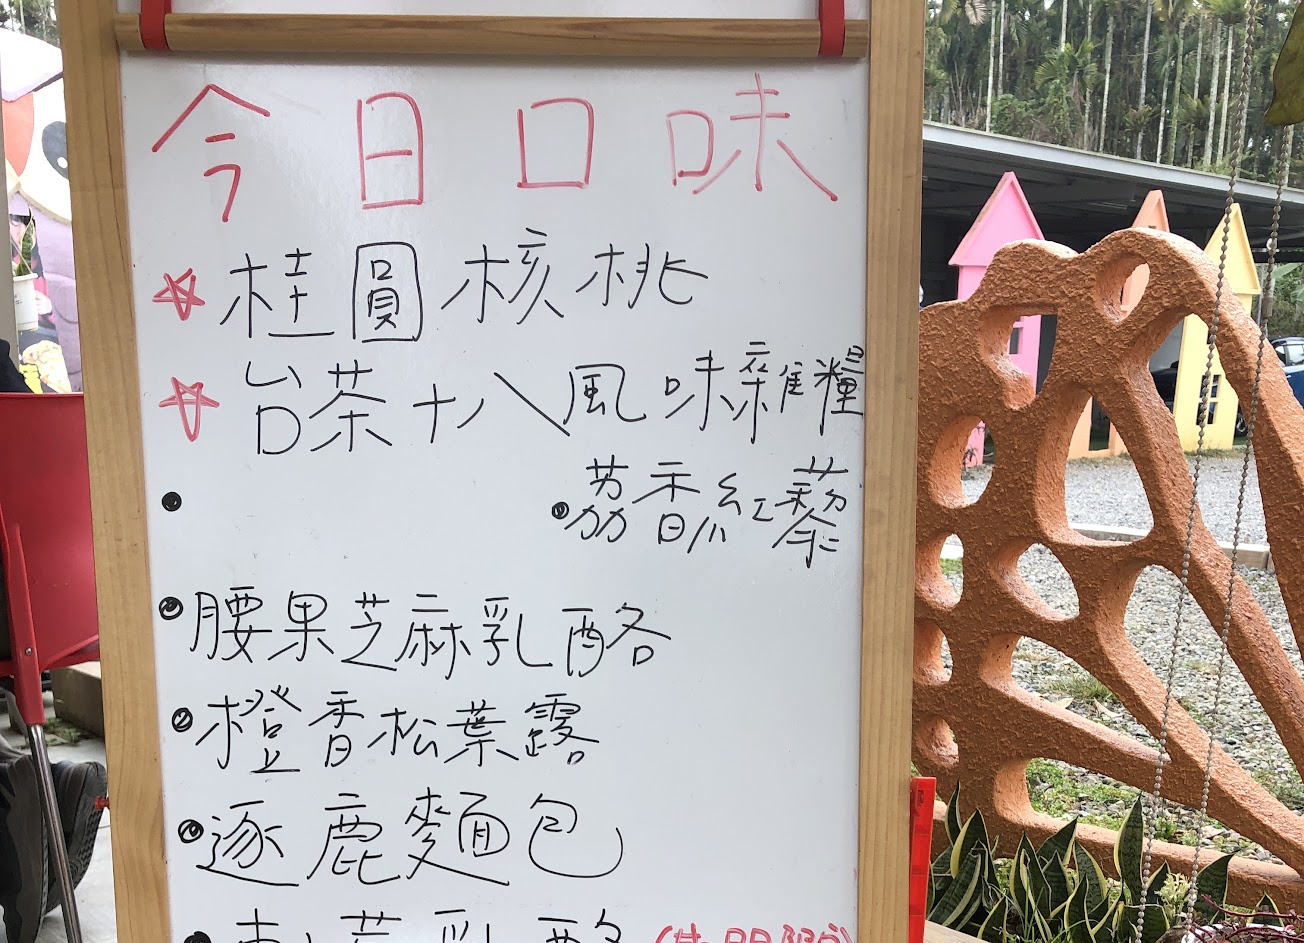 今日口味
桂圓核桃
台茶十八風味雜糧
荔香紅藜
腰果芝麻乳酪
橙香松葉露
逐鹿麵包
乳酪